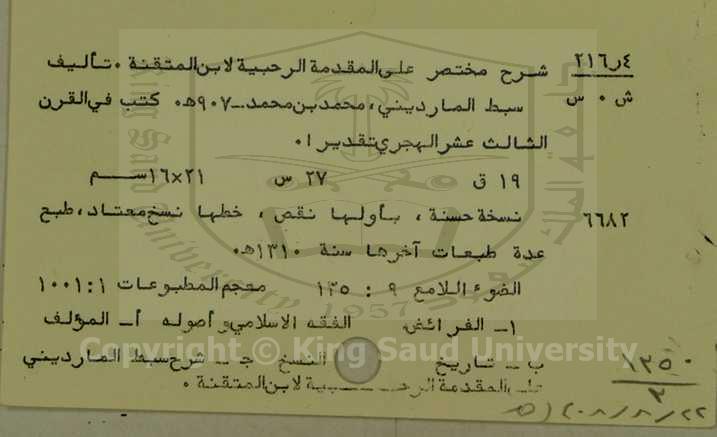 ٢١٦٫٤ شرح مختصر على المقدمة الرحبية لابن المتقنة ٠ تأليف
ش ٠ س سبط المارديني، محمد بن محمد ـ ٩٠٧هـ٠ كتب في القرن
الثالث عشر الهجري تقديرا ٠
١٩ ق ٢٧ س ٢١×١٦ســـم
٦٦٨٢ نسخة حسنة ، بأولها نقص ، خطها نسخ معتاد، طبع
عدة طبعات آخرها سنة ١٣١٠هـ٠
الضوء اللامع ٩ : ١٣٥ معجم المطبوعات ١ : ١٠٠١
١ـ الفرائض الفقه الاسلامي وأصوله أـ المؤلف
ب ـ تاريخ النسخ جـ ـ شرح سبط المارديني
على المقدمة الرحـــبية لابن المتقنة ٠
١٢٥٠
٢
Copyright © King Saud University
King Saud University
1957